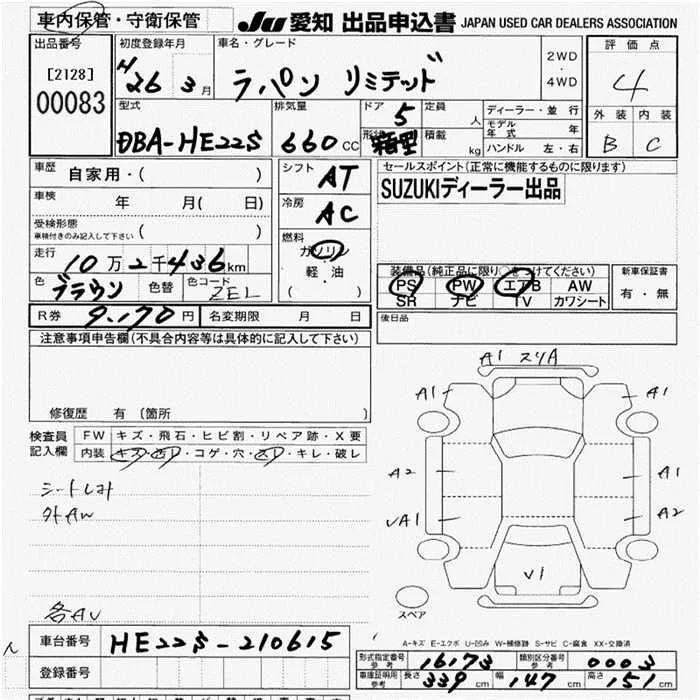 車内保管・守衛保管 JU 愛知 出品申込書 JAPAN USED CAR DEALERS ASSOCIATION
出品番号 初度登録年月 車名・グレード 評価点
[2128] H 26 3月 ラパン リミテッド 2WD・4WD 4
00083 型式 排気量 ドア 5 定員 人 ディーラー・並行 外装 内装
DBA-HE22S 660cc 形状 箱型 積載 kg モデル年式 年 B C
ハンドル 左・右
車歴 自家用・( ) シフト AT セールスポイント(正常に機能するものに限ります)
車検 年 月( 日) 冷房 AC SUZUKIディーラー出品
受検形態 車検付きのみ記入して下さい ( ) 燃料
走行 10万2千436km ガソリン
軽油
( )
色 ブラウン 色替 色コード ZEL
装備品(純正品に限り○をつけてください) 新車保証書
PS PW エアB AW 有・無
SR ナビ TV カワシート
R券 9,170円 名変期限 月 日 後日品
注意事項申告欄(不具合内容等は具体的に記入して下さい)
修復歴 有 (箇所 )
検査員記入欄 FW キズ・飛石・ヒビ割・リペア跡・X要
内装 キズ・汚レ・コゲ・穴・スレ・キレ・破レ
シートしみ
外AW
各AU
A1 スリA
A1 A1
A2 A1
UA1 A2
V1
スペア
A-キズ E-エクボ U-凹み W-補修跡 S-サビ C-腐食 XX-交換済
車台番号 HE22S-210615
登録番号
形式指定番号 参考 16173 類別区分番号 参考 0003
車庫証明用 参考 長さ 339cm 幅 147cm 高さ 151cm